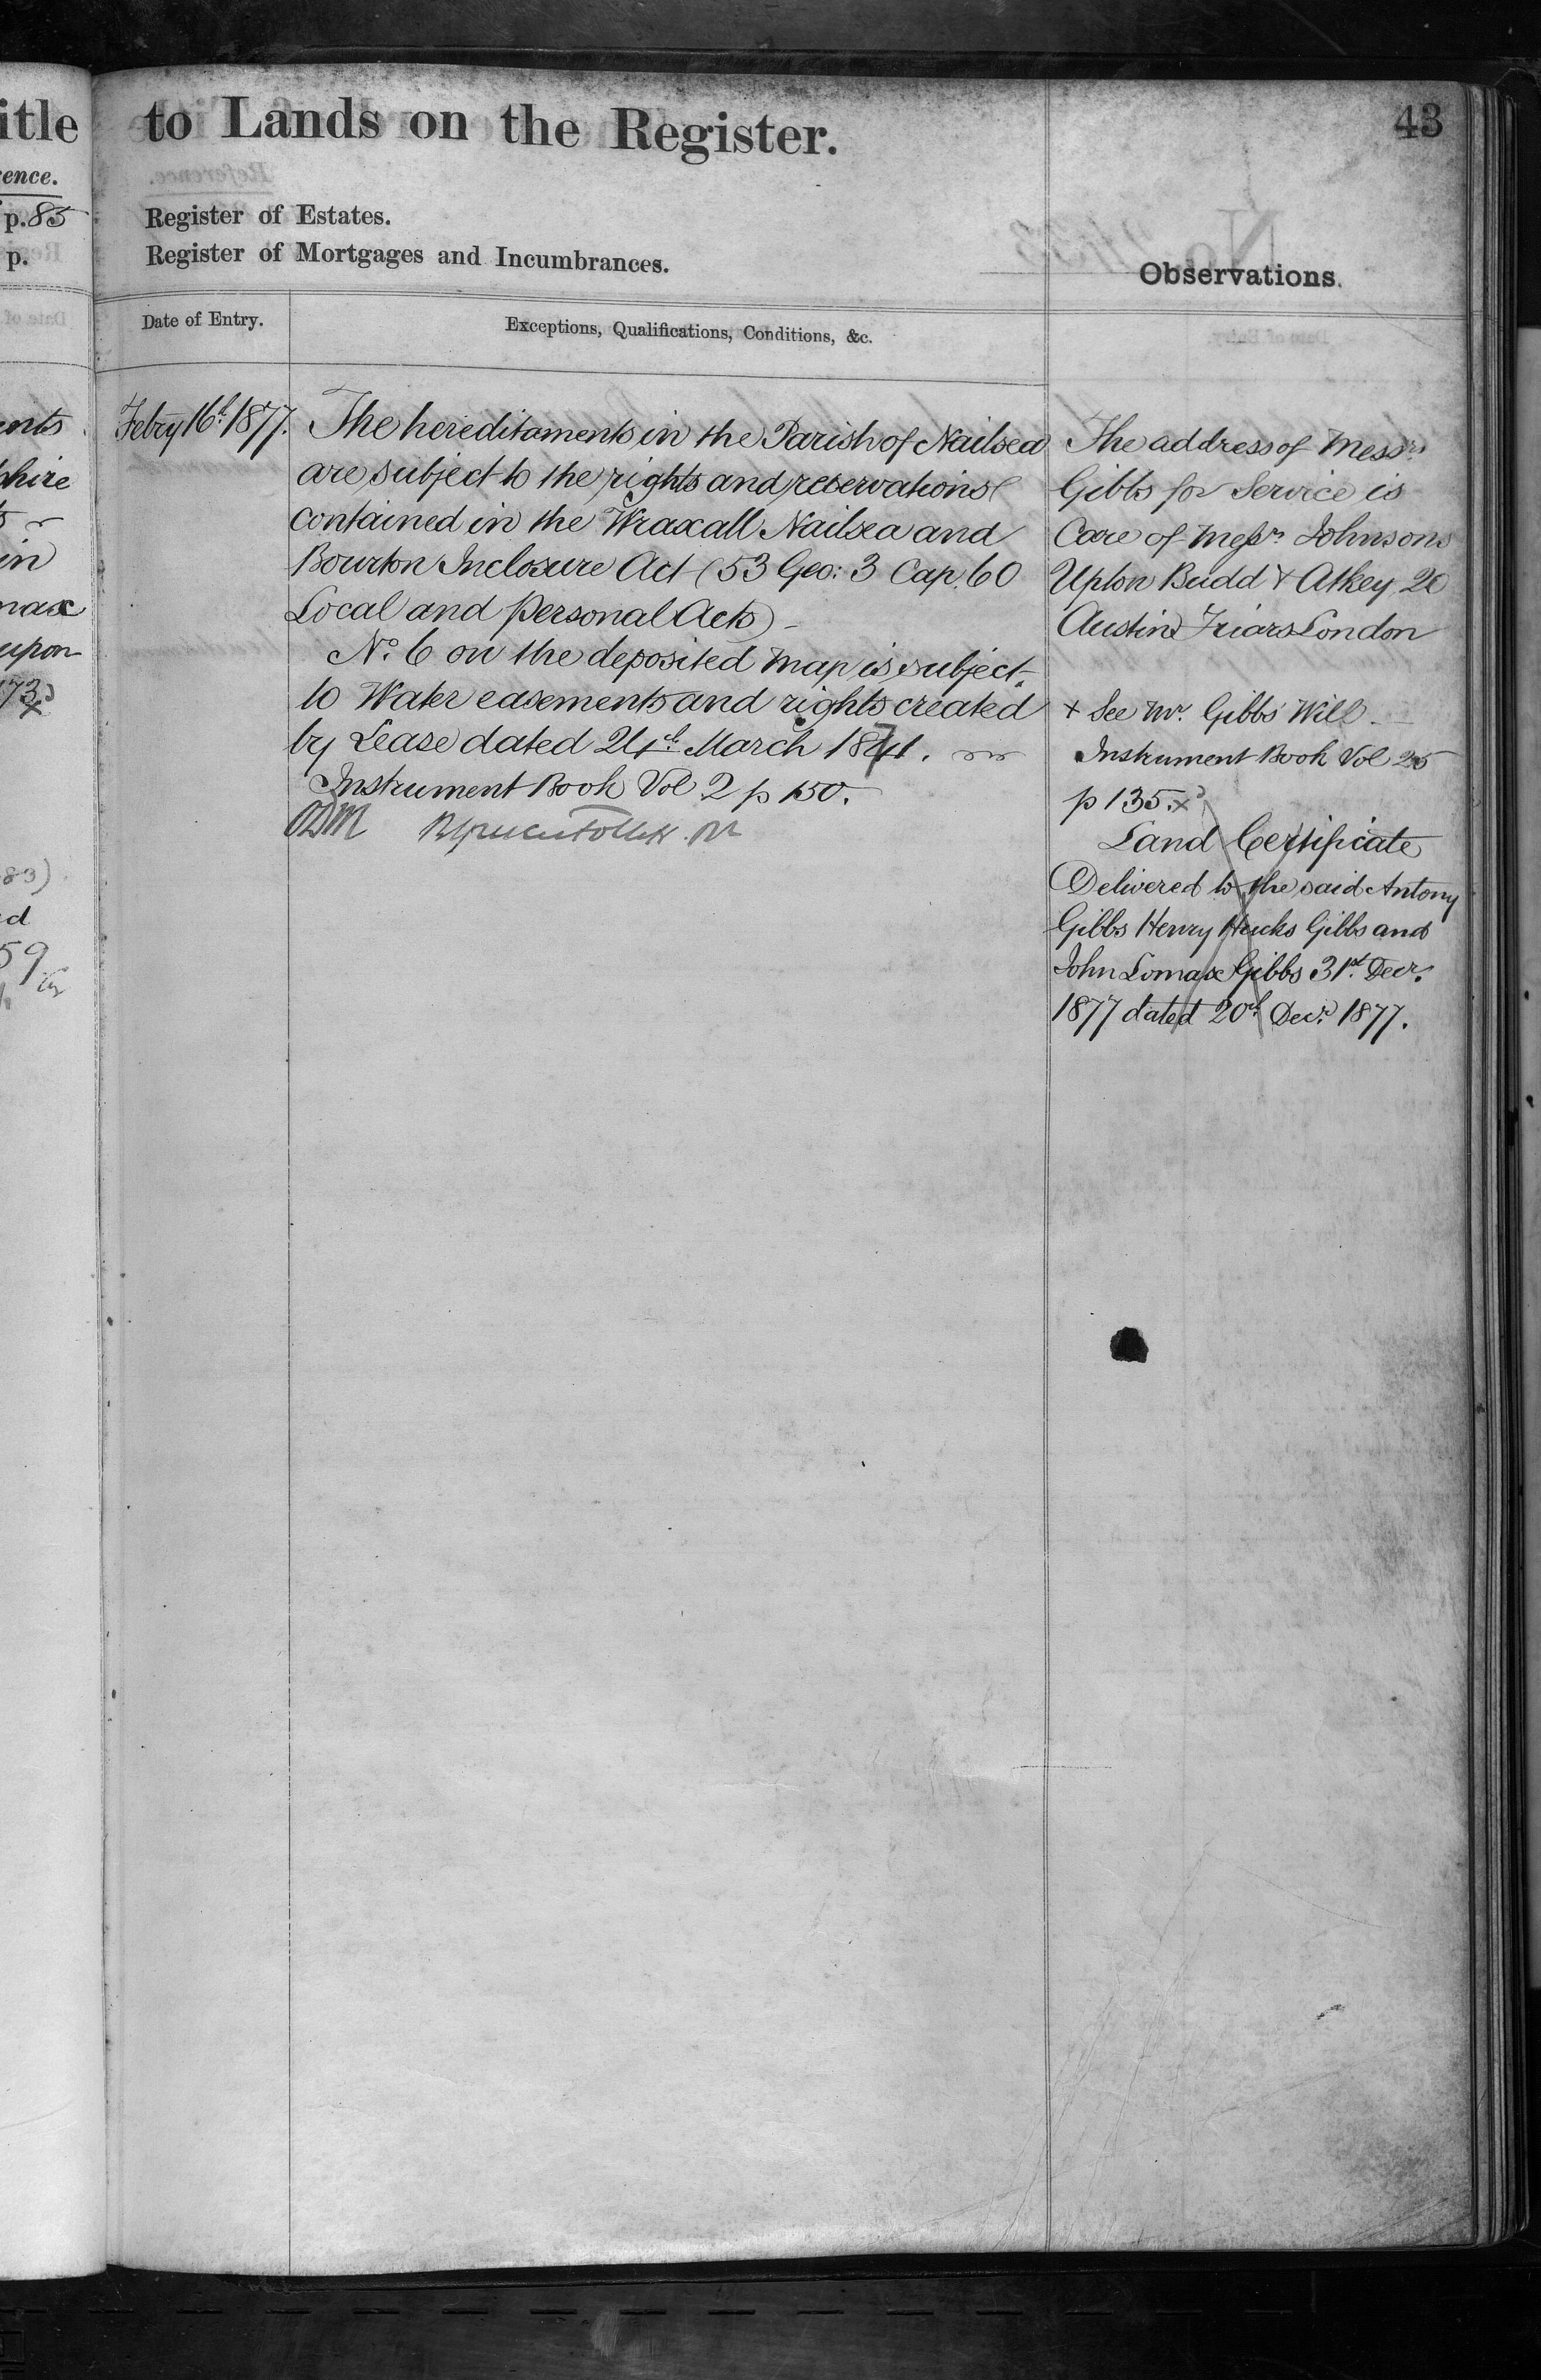 itle
ence.
p. 85
p.
ents
shire
in
max
upon
73
x
83)
d
59
to Lands on the Register.
43
Register of Estates.
Register of Mortgages and Incumbrances.
Observations.
Date of Entry.
Exceptions, Qualifications, Conditions, &c.
Febry 16th 1877.
The hereditaments in the Parish of Nailsea
are subject to the rights and reservations
contained in the Wraxall Nailsea and
Bourton Inclosure Act (53 Geo: 3 Cap. 60
Local and personal Acts)
No. 6 on the deposited map is subject
to Water easements and rights created
by Lease dated 24th March 1871.
Instrument Book Vol 2 p 150.
The address of Messrs
Gibbs for Service is
Care of Messrs Johnsons
Upton Budd & Atkey 20
Austin Friars London
+ See Mr. Gibbs' Will
Instrument Book Vol 25
p 135. x
Land Certificate
Delivered to the said Antony
Gibbs Henry Hucks Gibbs and
John Lomax Gibbs 31st Decr.
1877 dated 20th Decr. 1877.